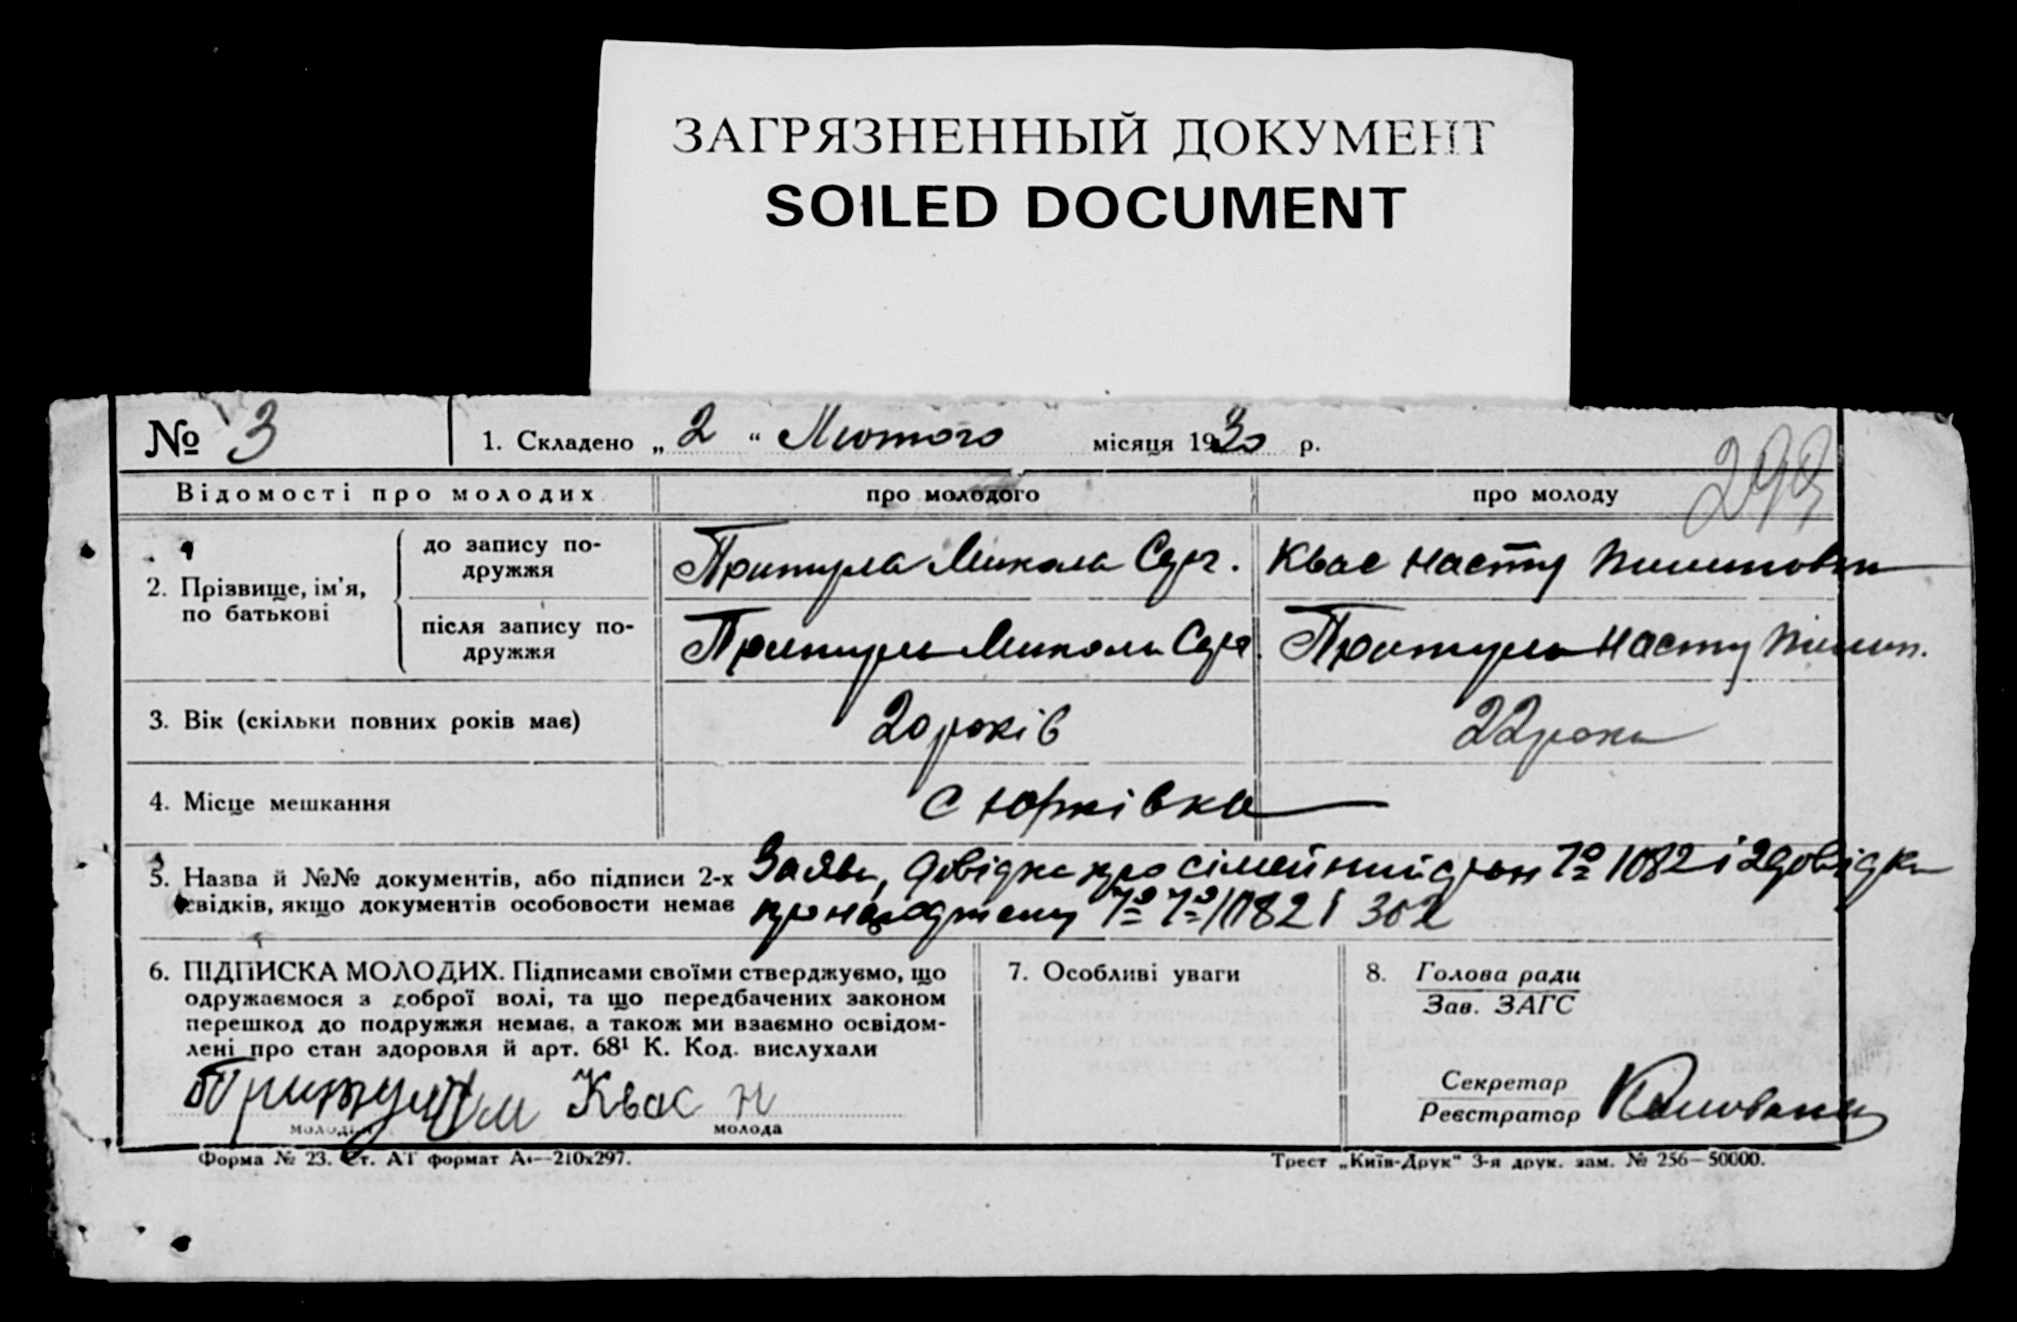 ЗАГРЯЗНЕННЫЙ ДОКУМЕНТ
SOILED DOCUMENT
№ 3
1. Складено „ 2 “ Лютого місяця 1930 р.
299
Відомості про молодих
про молодого
про молоду
2. Прізвище, ім’я, по батькові
до запису по-
дружжя
Притула Микола Серг.
Квас Настя Пилиповна
після запису по-
дружжя
Притула Микола Серг.
Притула Настя Пилип.
3. Вік (скільки повних років має)
20 років
22 роки
4. Місце мешкання
с Юрківка
5. Назва й №№ документів, або підписи 2-х
свідків, якщо документів особовости немає
Заява, довідка про сімейний стан № 1082 і 2 довідки
про 1082 і 302
6. ПІДПИСКА МОЛОДИХ. Підписами своїми стверджуємо, що
одружаємося з доброї волі, та що передбачених законом
перешкод до подружжя немає, а також ми взаємно освідом-
лені про стан здоровля й арт. 68¹ К. Код. вислухали
Притула Квас Н
молодий
молода
7. Особливі уваги
8. Голова ради
Зав. ЗАГС
Секретар
Реєстратор
Форма № 23. Ст. АТ формат А₄—210х297.
Трест „Київ-Друк“ 3-я друк. зам. № 256—50000.